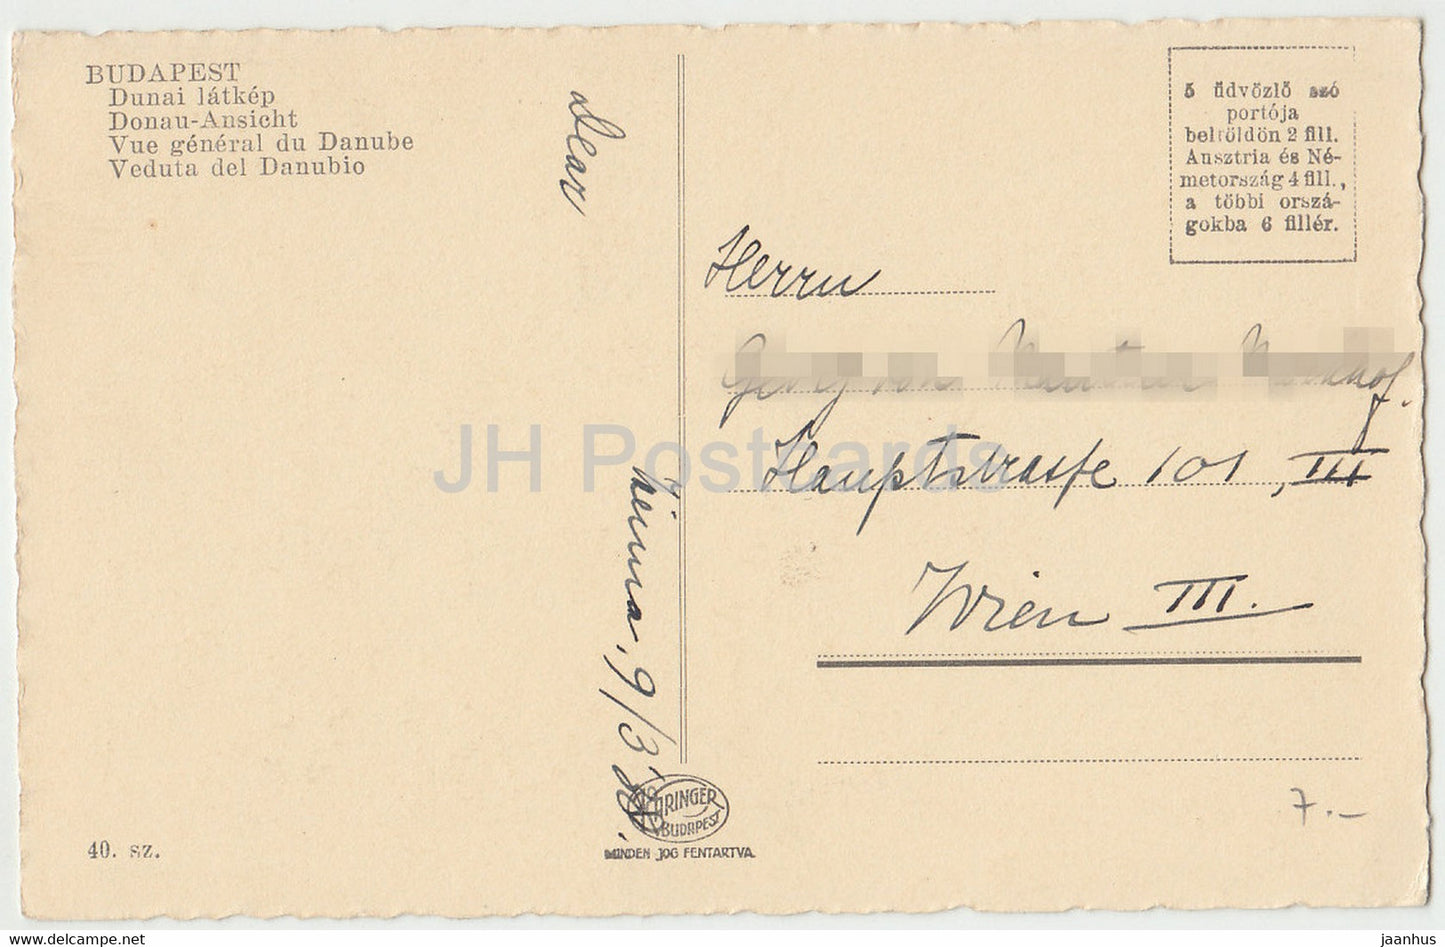 BUDAPEST
Dunai látkép
Donau-Ansicht
Vue général du Danube
Veduta del Danubio
5 üdvözlő szó
portója
belföldön 2 fill.
Ausztria és Né-
metország 4 fill.,
a többi orszá-
gokba 6 fillér.
Dear
Vienna, 9/3
Herrn
Hauptstrasse 101, III
Wien III.
7.–
RINGER
BUDAPEST
MINDEN JOG FENTARTVA
40. sz.
JH Postcards
hip-europe.com
jaanhus